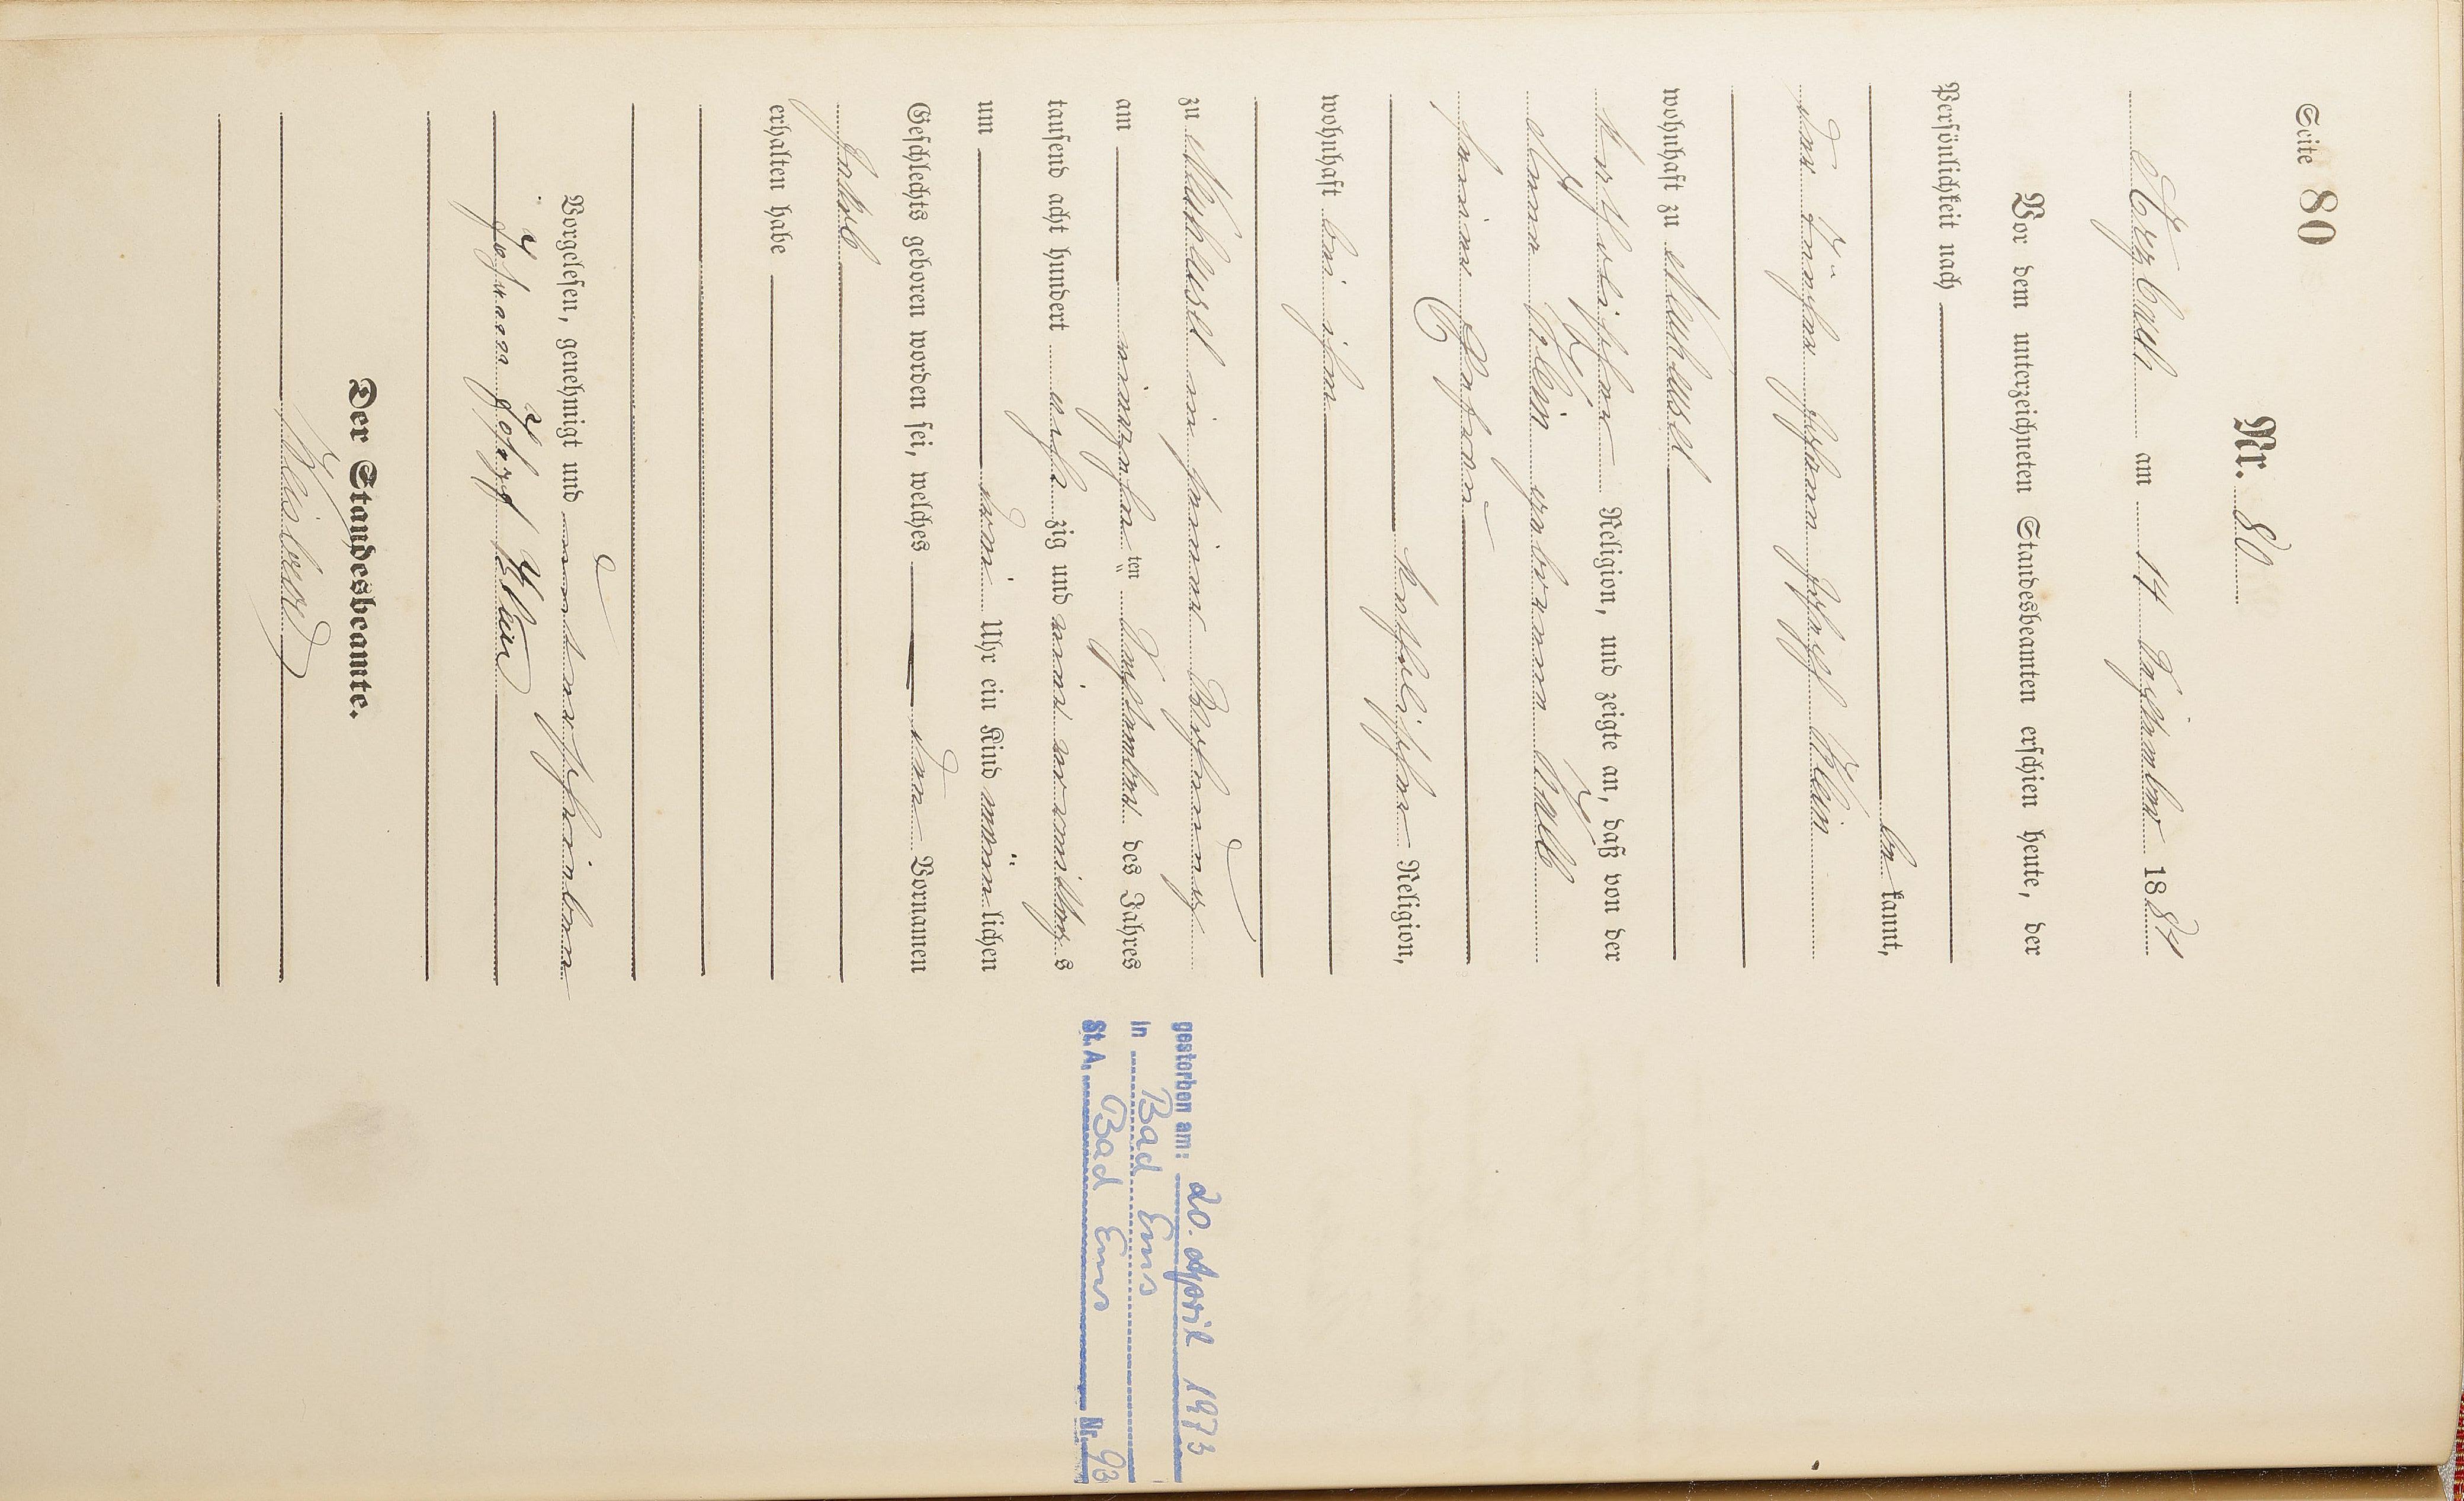 Seite 80
Nr. 80
am 14 September 1884
Vor dem unterzeichneten Standesbeamten erschien heute, der
Persönlichkeit nach
be kannt,
der Tüncher Johann Josef Klein
wohnhaft zu Neuhäusel
katholischer Religion, und zeigte an, daß von der
Anna Klein geborenen Kalb
seiner Ehefrau
katholischer Religion,
wohnhaft bei ihm
zu Neuhäusel in seiner Behausung
am vierzehn ten September des Jahres
tausend acht hundert acht zig und vier vormittag s
um drei Uhr ein Kind männ lichen
Geschlechts geboren worden sei, welches den Vornamen
Jakob
erhalten habe
Vorgelesen, genehmigt und unterschrieben
Johann Josef Klein
Der Standesbeamte.
gestorben am: 20. April 1973
in Bad Ems
St. A. Bad Ems Nr. 93